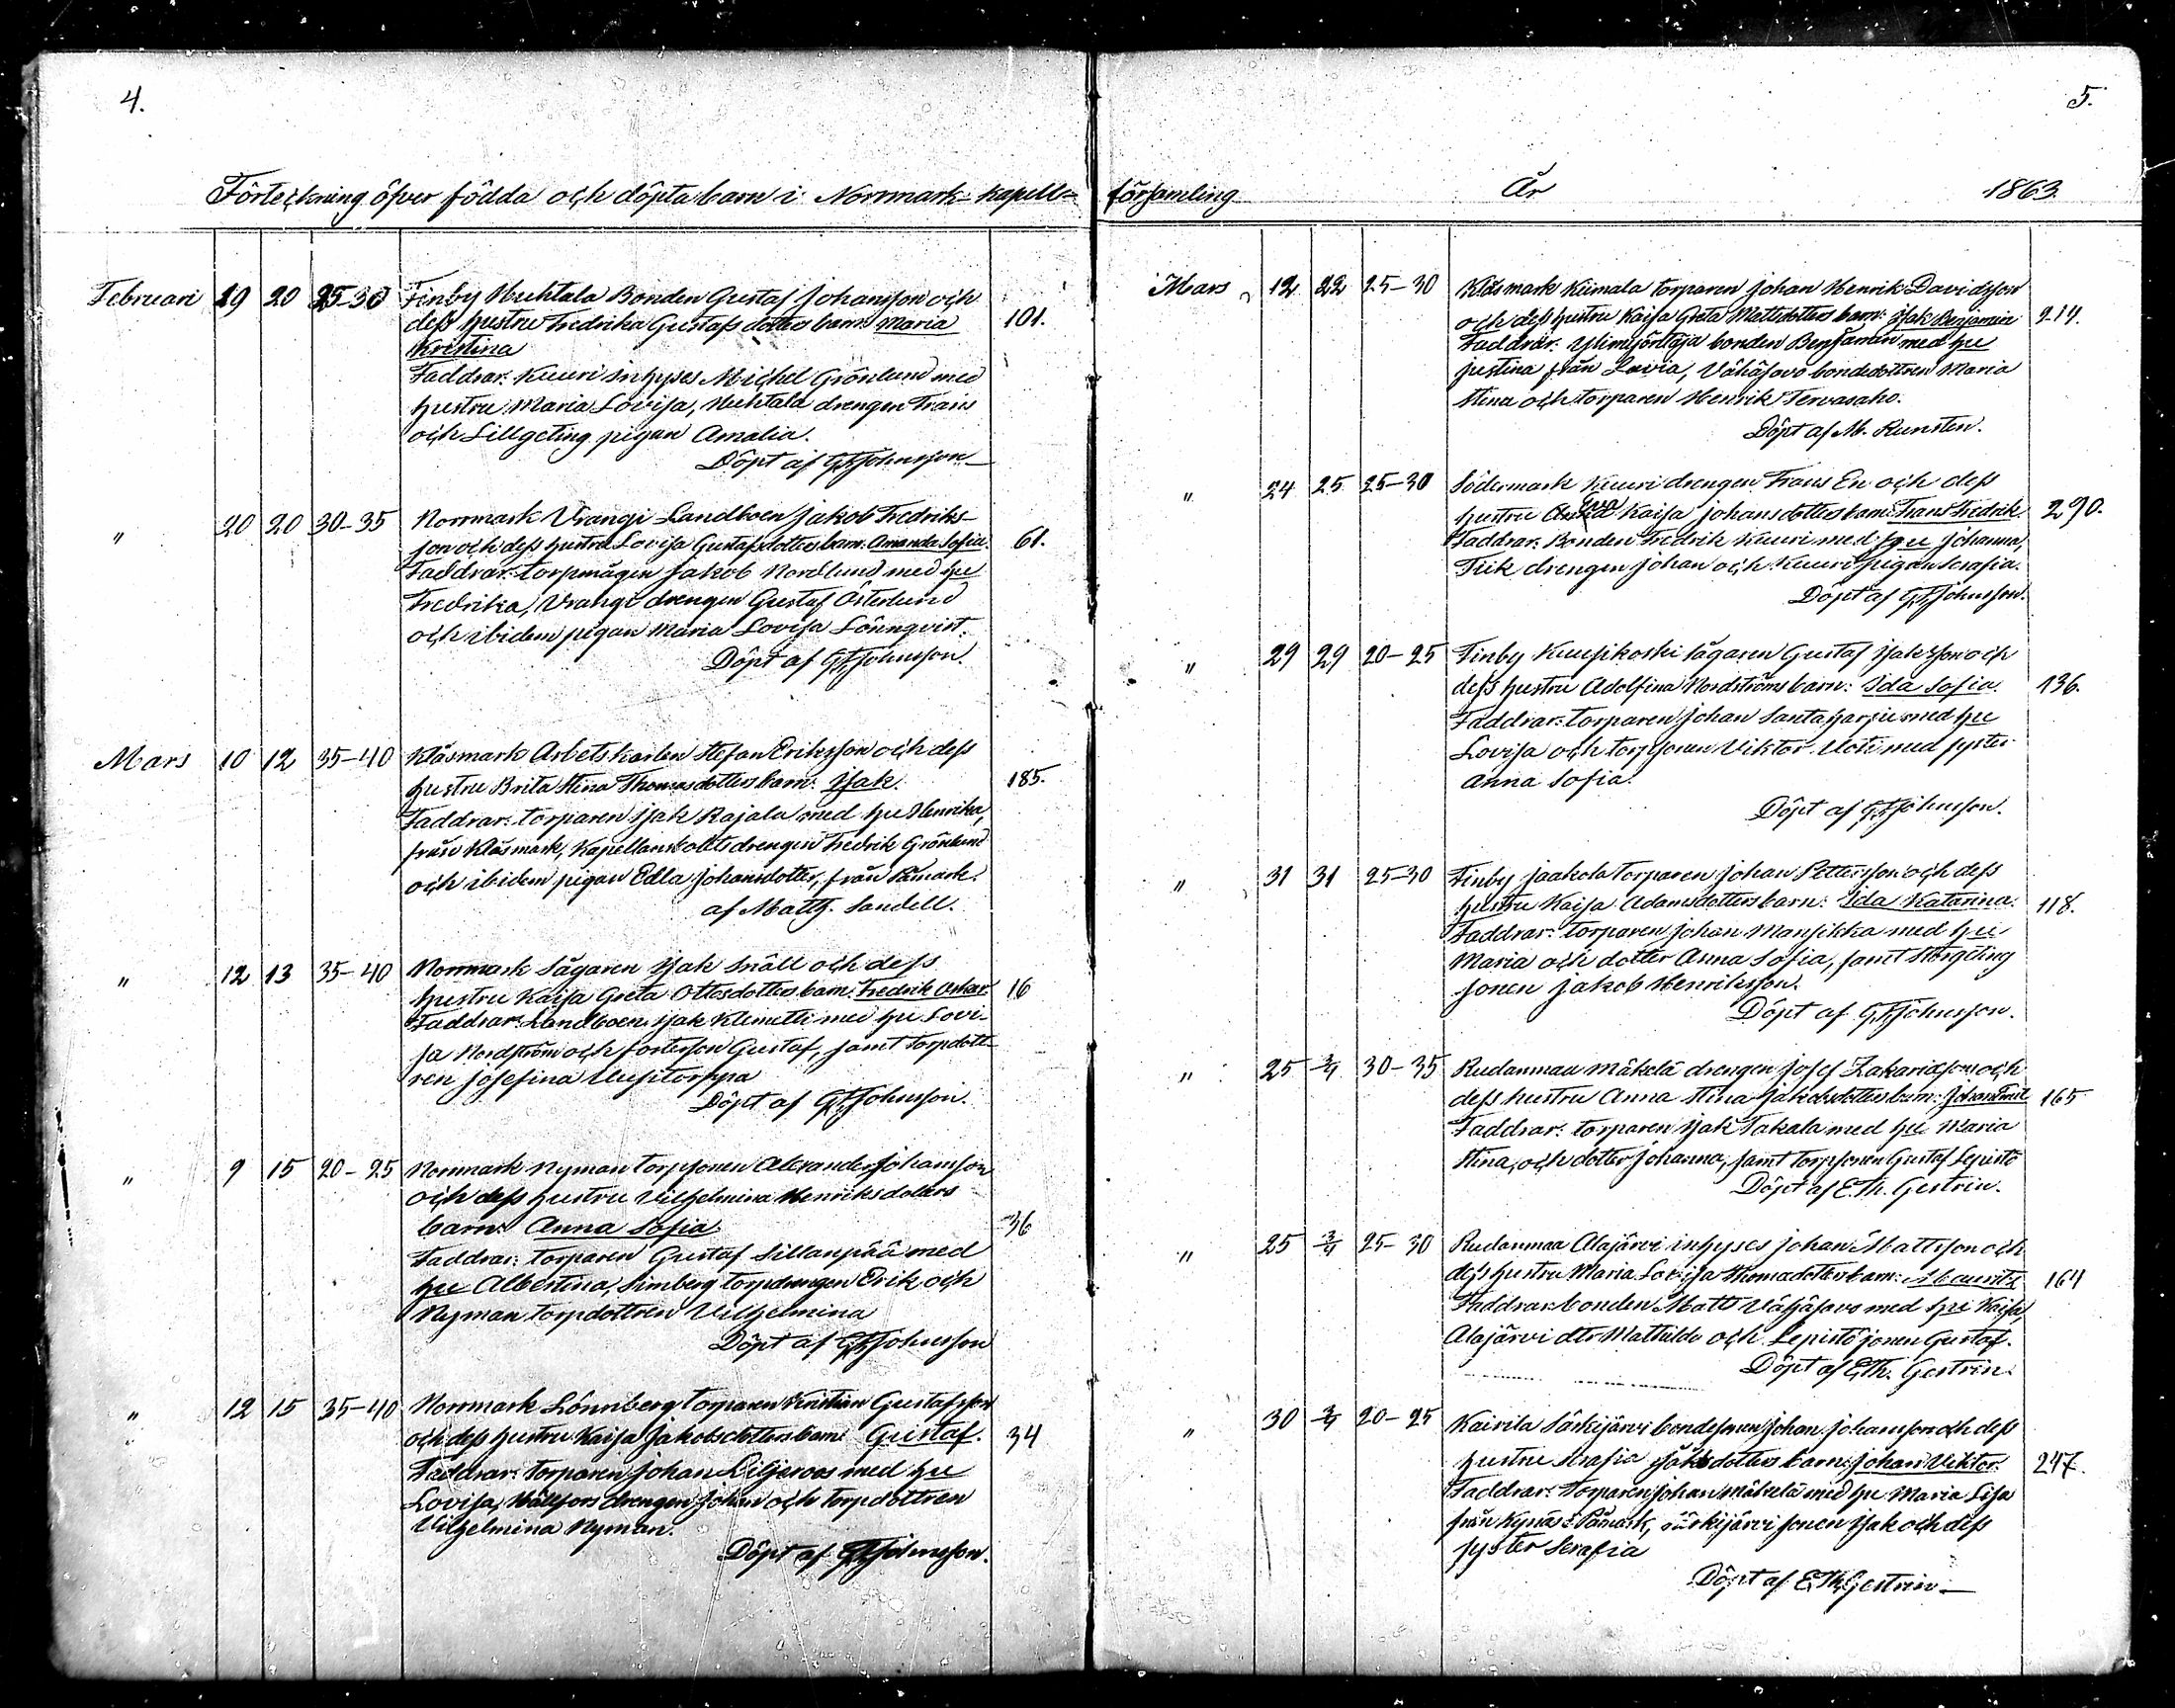 4.
Förteckning öfver födda och döpta barn i Norrmark kapell=
Februari 19 20 25-30 Finby Huhtala Bonden Gustaf Johansson och
dess hustru Fredrika Gustafsdotters barn Maria 101.
Kristina
Faddrar: Kuuri inhyses Michel Grönlund med
hustru Maria Lovisa, Huhtala drengen Frans
och Lillgeting pigan Amalia.
Döpt af GFJohnsson
" 20 20 30-35 Norrmark Vrangi Landboen Jakob Fredriks-
son och dess hustru Lovisa Gustafsdotters barn: Amanda Sofia. 61.
Faddrar: torpmågen Jakob Nordlund med hu
Fredrika, Vrangi drengen Gustaf Österlund
och ibidem pigan Maria Lovisa Lönnqvist.
Döpt af GFJohnsson.
Mars 10 12 35-40 Klåsmark Arbetskarlen Stefan Eriksson och dess
hustru Brita Stina Thomasdotters barn: Isak. 185.
Faddrar: torparen Isak Rajala med hu Henrika,
från Klåsmark, Kapellansbolets drengen Fredrik Grönlund
och ibidem pigan Edla Johansdotter, från Påmark.
af Matth. Sandell.
" 12 13 35-40 Norrmark Sågaren Isak Snäll och dess
hustru Kaisa Greta Ottosdotters barn: Fredrik Oskar 16
Faddrar: Landboen Isak Klemetti med hu Lovi-
sa Nordström och fosterson Gustaf, samt torpdott-
ren Josefina Uusitorppa
Döpt af GFJohnsson.
" 9 15 20-25 Norrmark Nyman torpsonen Alexander Johansson
och dess hustru Vilhelmina Henriksdotters
barn: Anna Sofia. 36
Faddrar: torparen Gustaf Sillanpää med
hu Albertina, Simberg torpdrengen Erik och
Nyman torpdottren Vilhelmina
Döpt af GFJohnsson
" 12 15 35-40 Norrmark Lönnberg torparen Kristian Gustafsson
och dess hustru Kaisa Jakobsdotters barn: Gustaf. 34
Faddrar: torparen Johan Liljeroos med hu
Lovisa, drengen Johan och torpdottren
Vilhelmina Nyman.
Döpt af GFJohnsson.
5.
församling År 1863.
Mars 12 22 25-30 Klåsmark Kiimala torparen Johan Henrik Davidsson
och dess hustru Kaisa Greta Mattsdotters barn: Isak Benjamin 214.
Faddrar: bonden Benjamin med hu
Justina från Lavia, Vähäsavo bondedottren Maria
Stina och torparen Henrik Tervasaho.
Döpt af M. Runsten.
" 24 25 25-30 Södermark Kuuri drengen Frans En och dess
hustru Eva Kaisa Johansdotters barn: Frans Fredrik 290.
Faddrar: Bonden Fredrik Kuuri med hu Johanna,
Fiik drengen Johan och Kuuri pigan Serafia.
Döpt af GFJohnsson.
" 29 29 20-25 Finby Kuusikoski sågaren Gustaf Isaksson och
dess hustru Adolfina Nordströms barn: Ida Sofia. 136.
Faddrar: torparen Johan Santaharju med hu
Lovisa och torpsonen Viktor Uoti med syster
Anna Sofia.
Döpt af GFJohnsson.
" 31 31 25-30 Finby Jaakola torparen Johan Pettersson och dess
hustru Kaisa Adamsdotters barn: Ida Katarina. 118.
Faddrar: torparen Johan Mansikka med hu
Maria och dotter Anna Sofia, samt Storgeting
sonen Jakob Henriksson.
Döpt af GFJohnsson.
" 25 3/4 30-35 Rudanmaa Mäkelä drengen Josef Zakariasson och
dess hustru Anna Stina Jakobsdotters barn: Johan Emil 165
Faddrar: torparen Isak Takala med hu Maria
Stina, och dotter Johanna, samt torpsonen Gustaf Lepistö
Döpt af E.Th. Gestrin.
" 25 3/4 25-30 Rudanmaa Alajärvi inhyses Johan Mattsson och
dess hustru Maria Lovisa Thomasdotters barn: Mauritz 164
Faddrar: bonden Matts Vähäsavo med hu Kaisa,
Alajärvi dtr Mathilda och Lepistö sonen Gustaf.
Döpt af E.Th. Gestrin.
" 30 3/4 20-25 Kairila Särkijärvi bondesonen Johan Johansson och dess
hustru Serafia Isaksdotters barn: Johan Viktor. 247.
Faddrar: Torparen Johan Mäkelä med hu Maria Lisa
från Kynäs i Påmark, Särkijärvi sonen Isak och dess
syster Serafia
Döpt af E.Th.Gestrin